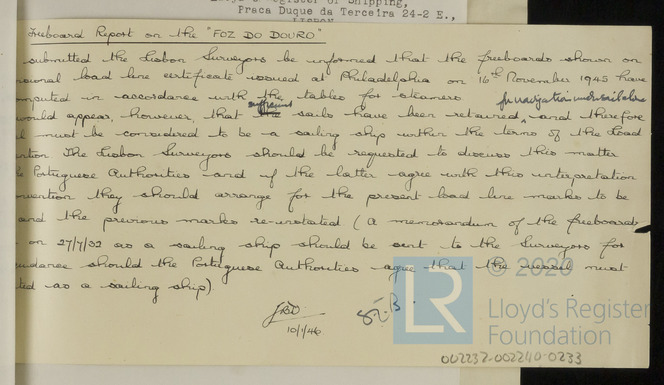 Lloyd's Register of Shipping,
Praca Duque da Terceira 24-2 E.,
LISBON
Freeboard Report on the "FOZ DO DOURO"
submitted the Lisbon Surveyors be informed that the freeboards shown on
sional load line certificate issued at Philadelphia on 16th November 1945 have
mputed in accordance with the tables for steamers
for navigation under sail alone
would appear, however, that the sufficient sails have been retained, and therefore
l must be considered to be a sailing ship within the terms of the Load
ntion. The Lisbon Surveyors should be requested to discuss this matter
e Portuguese Authorities and if the latter agree with this interpretation
nvention they should arrange for the present load line marks to be
and the previous marks re-instated (A memorandum of the freeboards
on 27/7/32 as a sailing ship should be sent to the Surveyors for
uidance should the Portuguese Authorities agree that the vessel must
ted as a sailing ship)
10/1/46
© 2020
LR
Lloyd's Register
Foundation
002232-002240-0233